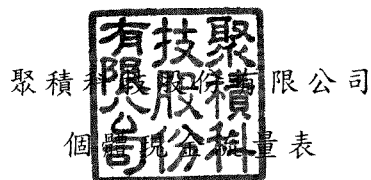 聚積科技股份有限公司
個體現金流量表
聚積科
技股份
有限公司